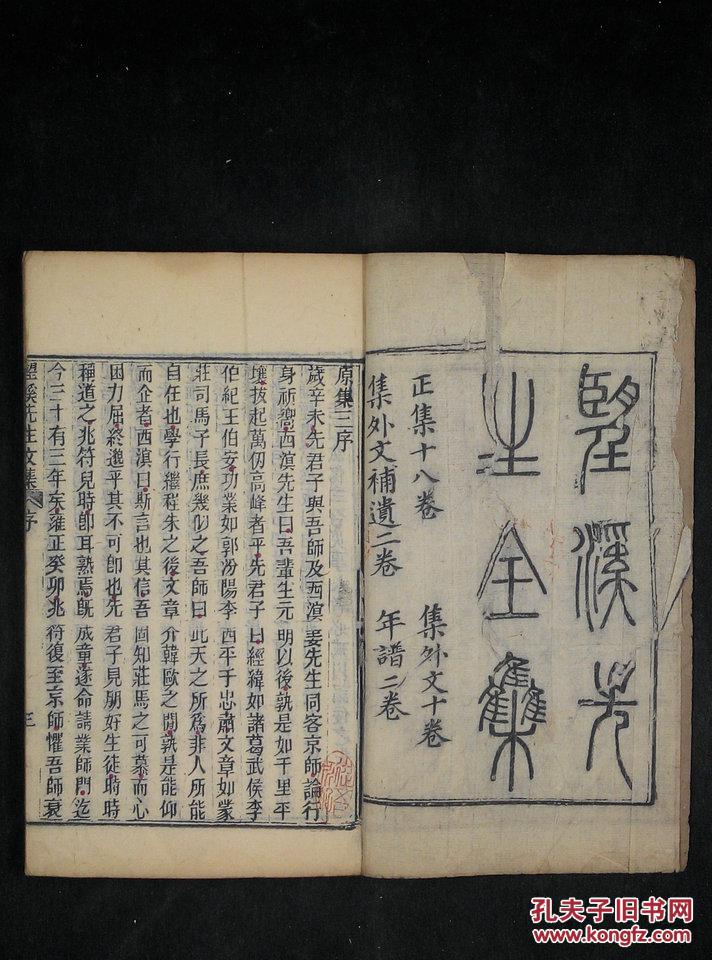 望溪先
生全集
正集十八卷
集外文十卷
集外文補遺二卷
年譜二卷
原集三序
歲辛未先君子與吾師及西溟姜先生同客京師論行
身祈嚮西溟先生曰吾輩生元明以後孰是如千里平
壤拔起萬仞高峰者乎先君子曰經緯如諸葛武侯李
伯紀王伯安功業如郭汾陽李西平于忠肅文章如蒙
莊司馬子長庶幾似之吾師曰此天之所為非人所能
自任也學行繼程朱之後文章介韓歐之間孰是能仰
而企者西溟曰斯言也其信吾固知莊馬之可慕而心
困力屈終邈乎其不可即也先君子見朋好生徒時時
稱道之兆符兒時即耳熟焉既成童遂命請業師門迄
今三十有三年矣雍正癸卯兆符復至京師懼吾師衰
望溪先生文集 序
三
孔夫子旧书网
www.kongfz.com